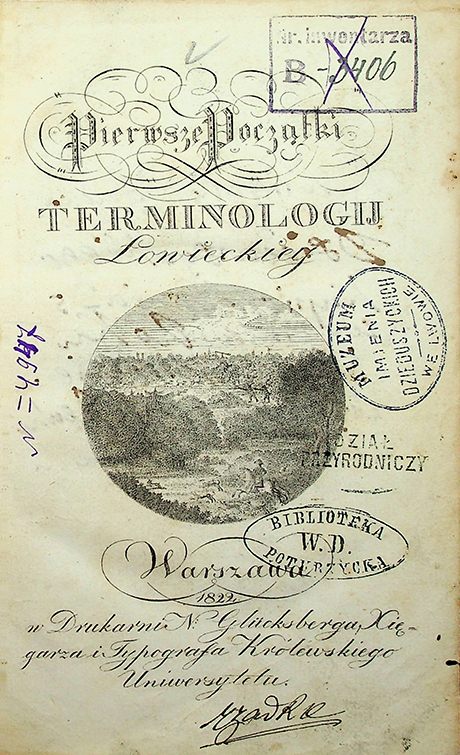 Nr. inwentarza
B - 3406
Pierwsze Początki
TERMINOLOGIJ
Łowieckiey
MUZEUM
IMIENIA
DZIEDUSZYCKICH
WE LWOWIE
DZIAŁ
PRZYRODNICZY
BIBLIOTEKA
W. D.
POTURZYCKA
Warszawa
1822
w Drukarni N. Glücksberga, Xię-
garza i Typografa Królewskiego
Uniwersytetu.
rzadka